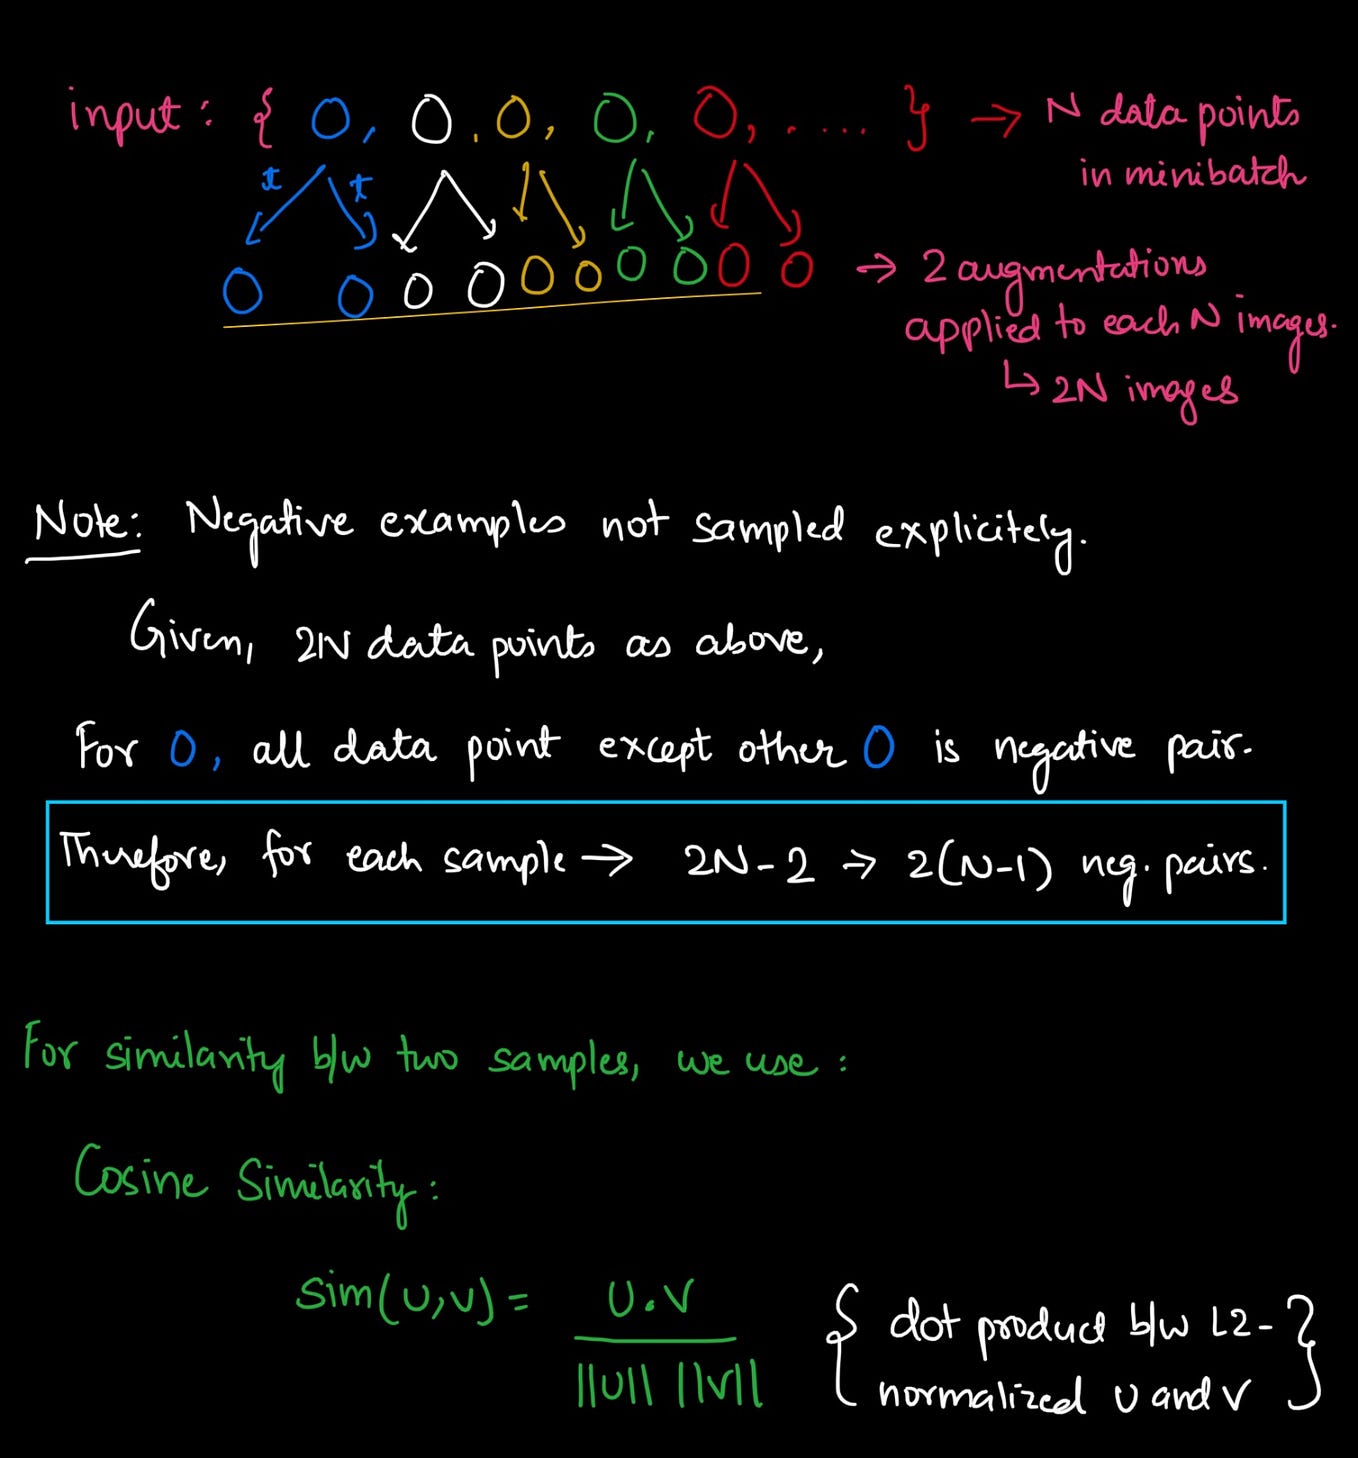 input: { O, O, O, O, O, .... } → N data points
in minibatch
t t
O O O O O O O O O O → 2 augmentations
applied to each N images.
↳ 2N images
Note: Negative examples not sampled explicitely.
Given, 2N data points as above,
For O, all data point except other O is negative pair.
Therefore, for each sample → 2N-2 → 2(N-1) neg. pairs.
For similarity b/w two samples, we use:
Cosine Similarity:
sim(u,v) = u.v
||u|| ||v||
{ dot product b/w L2-
normalized u and v }